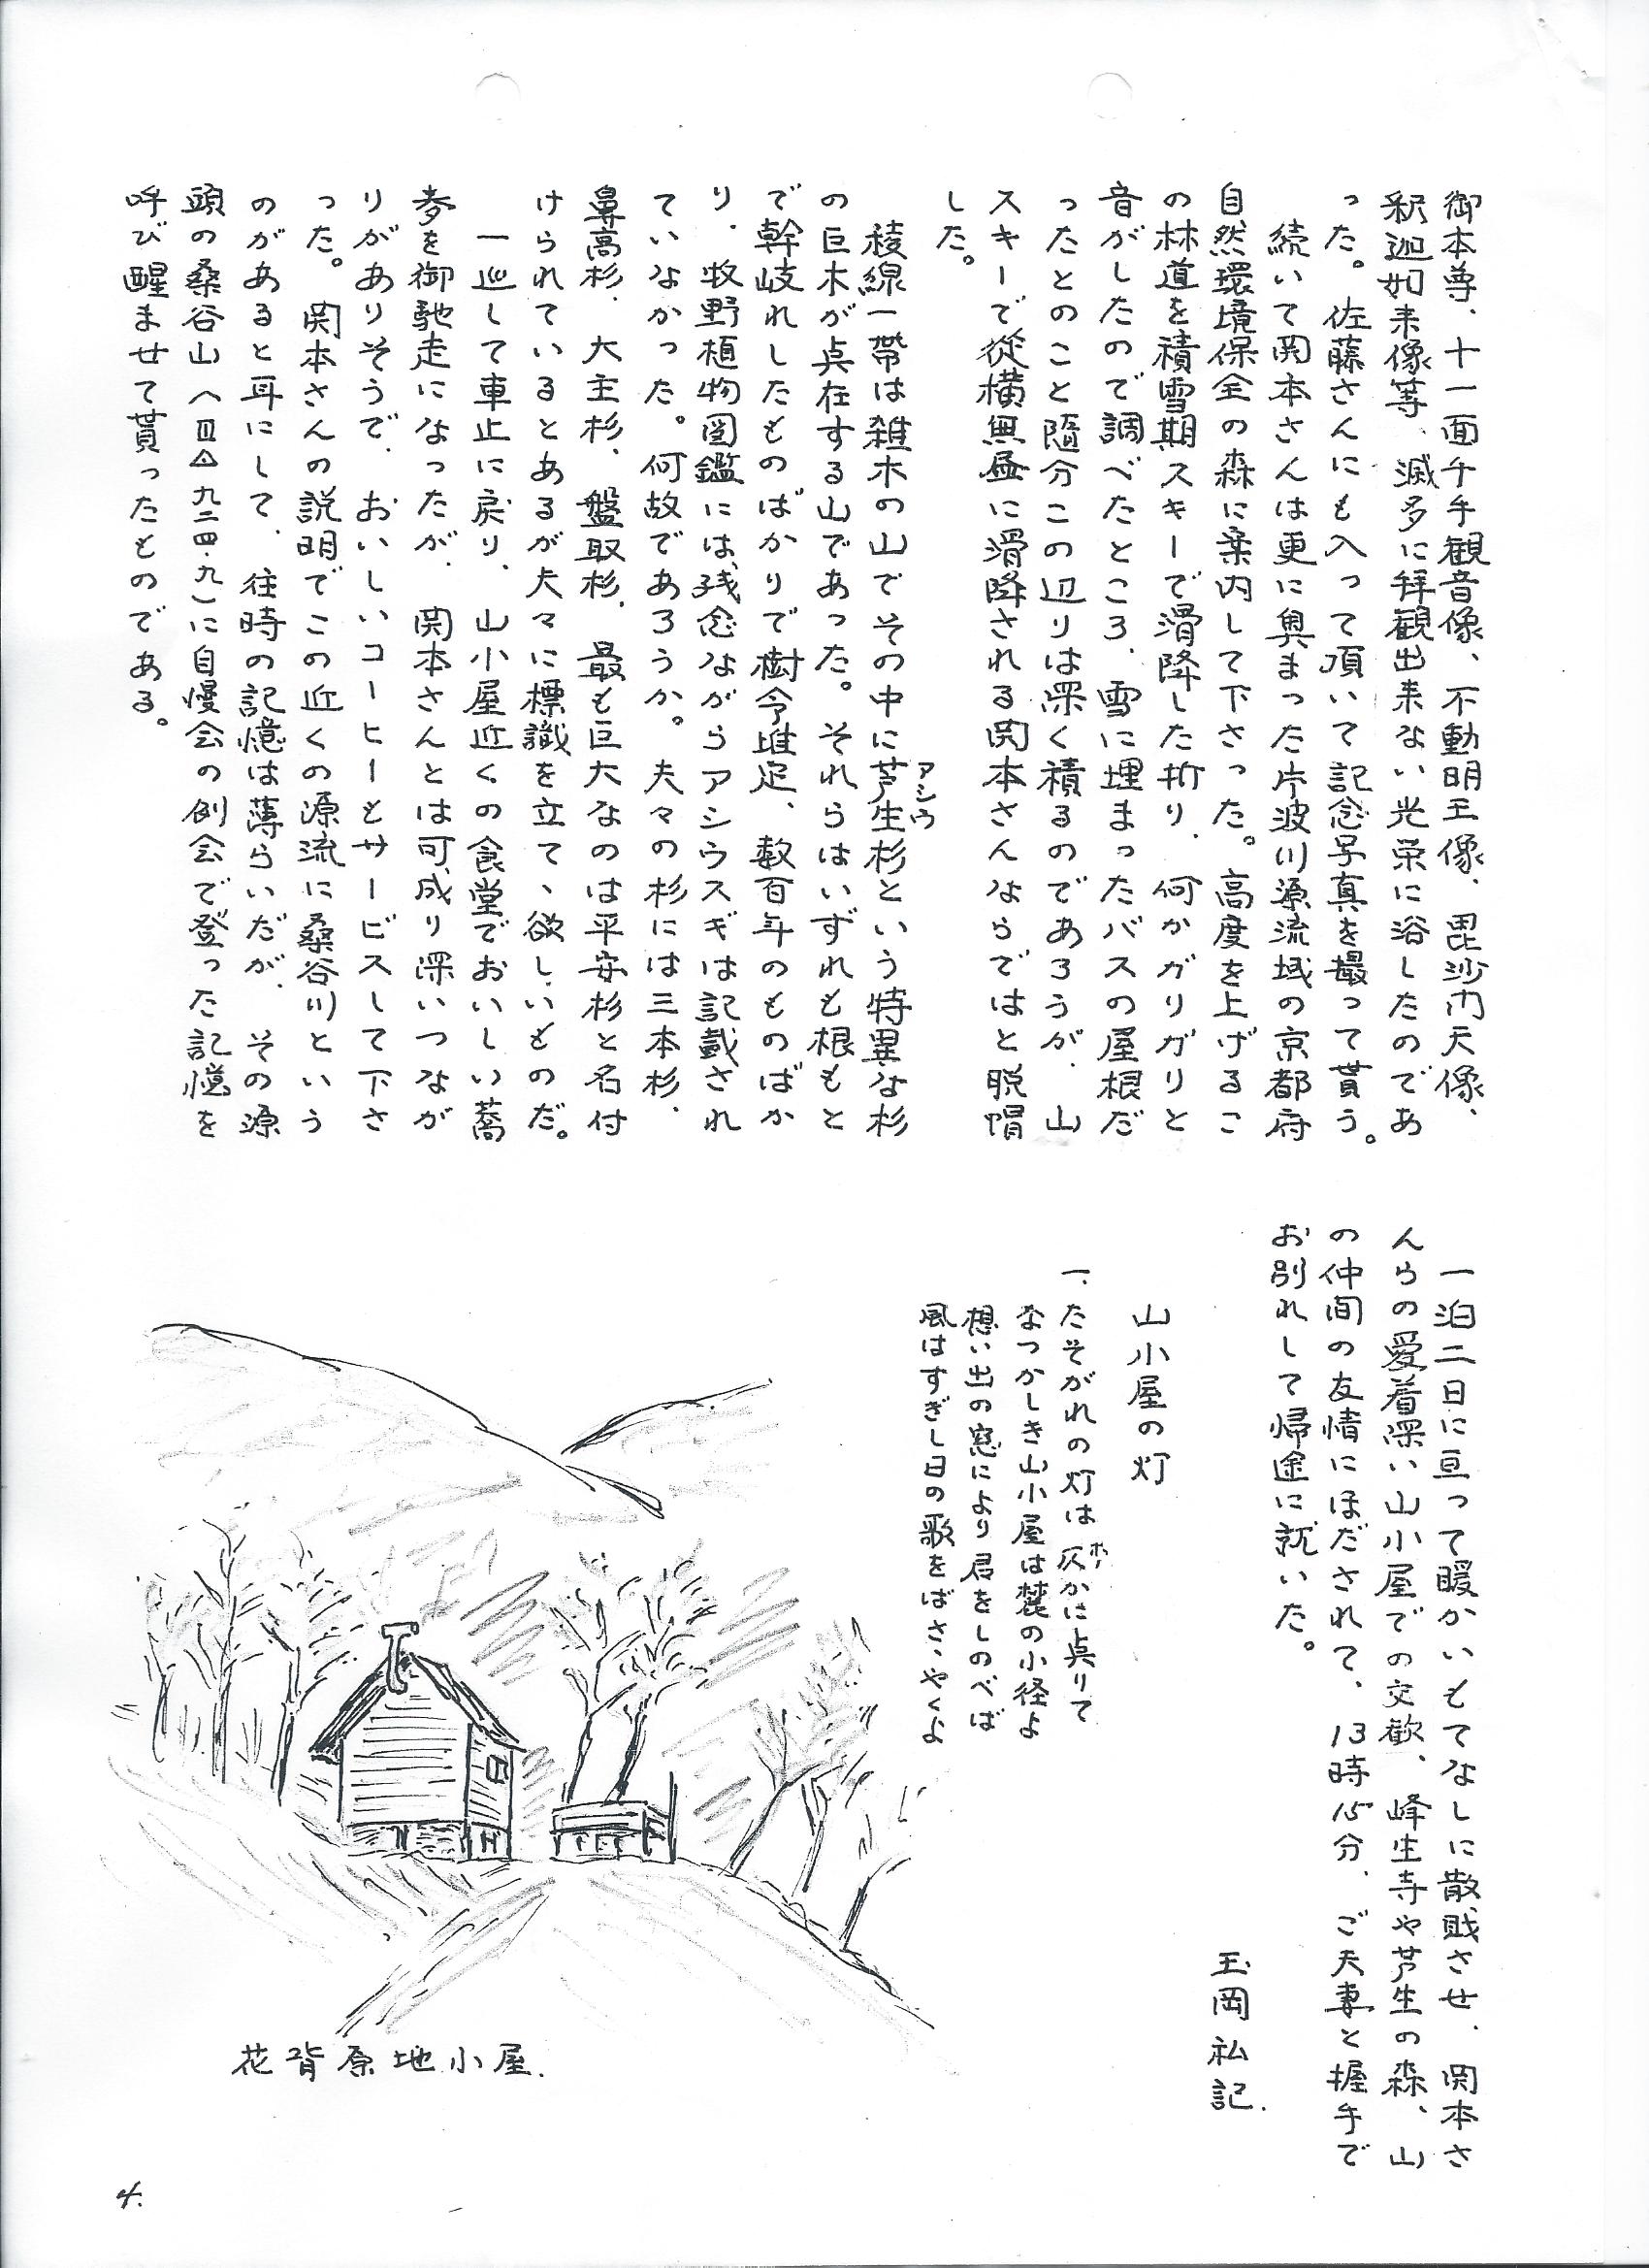 御本尊、十一面千手観音像、不動明王像、毘沙門天像、
釈迦如来像等、滅多に拝観出来ない光栄に浴したのであ
った。佐藤さんにも入って頂いて記念写真を撮って貰う。
続いて関本さんは更に奥まった片波川源流域の京都府
自然環境保全の森に案内して下さった。高度を上げるこ
の林道を積雪期スキーで滑降した折り、何かガリガリと
音がしたので調べたところ、雪に埋まったバスの屋根だ
ったとのこと随分この辺りは深く積るのであろうが、山
スキーで従横無尽に滑降される関本さんならではと脱帽
した。
稜線一帯は雑木の山でその中に芦生杉という特異な杉
アシウ
の巨木が点在する山であった。それらはいずれも根もと
で幹岐れしたものばかりで樹令推定、数百年のものばか
り、牧野植物図鑑には、残念ながらアシウスギは記載され
ていなかった。何故であろうか。夫々の杉には三本杉、
鼻高杉、大主杉、盤取杉、最も巨大なのは平安杉と名付
けられているとあるが夫々に標識を立て、欲しいものだ。
一巡して車止に戻り、山小屋近くの食堂でおいしい蕎
麦を御馳走になったが、関本さんとは可成り深いつなが
りがありそうで、おいしいコーヒーもサービスして下さ
った。関本さんの説明でこの近くの源流に桑谷川という
のがあると耳にして、往時の記憶は薄らいだが、その源
頭の桑谷山(Ⅲ△九二四.九)に自慢会の例会で登った記憶を
呼び醒ませて貰ったものである。
一泊二日に亘って暖かいもてなしに散財させ、関本さ
んらの愛着深い山小屋での交歓、峰生寺や芦生の森、山
の仲間の友情にほだされて、13時15分、ご夫妻と握手で
お別れして帰途に就いた。
玉岡私記.
山小屋の灯
一.たそがれの灯は仄かに点りて
ホノ
なつかしき山小屋は麓の小径よ
想い出の窓により君をしのべば
風はすぎし日の歌をばさゝやくよ
花背原地小屋.
4.